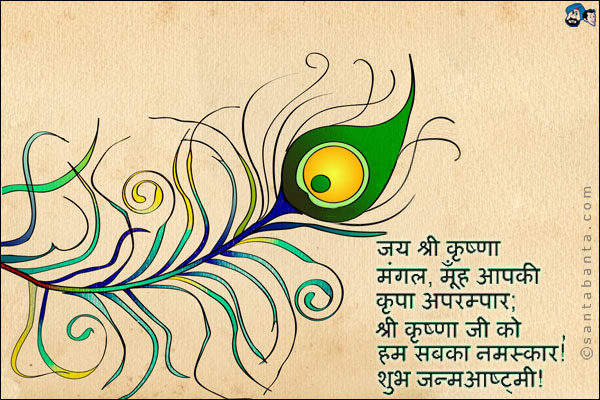 जय श्री कृष्णा
मंगल, मूँह आपकी
कृपा अपरम्पार;
श्री कृष्णा जी को
हम सबका नमस्कार!
शुभ जन्मआष्ट्मी!
©santabanta.com